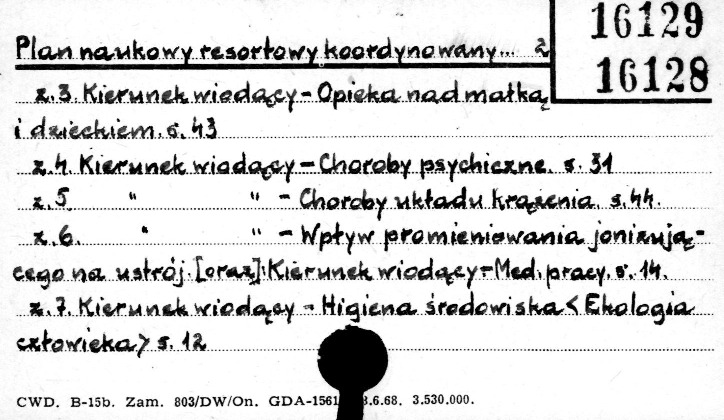 16129
Plan naukowy resortowy koordynowany... 2
16128
z.3. Kierunek wiodący - Opieka nad matką
i dzieckiem. s. 43
z.4. Kierunek wiodący - Choroby psychiczne. s. 31
z.5 " " - Choroby układu krążenia. s. 44.
z.6. " " - Wpływ promieniowania jonizują-
cego na ustrój. [oraz]: Kierunek wiodący - Med. pracy. s. 14.
z.7. Kierunek wiodący - Higiena środowiska < Ekologia
człowieka > s. 12
CWD. B-15b. Zam. 803/DW/On. GDA-1561 .6.68. 3.530.000.